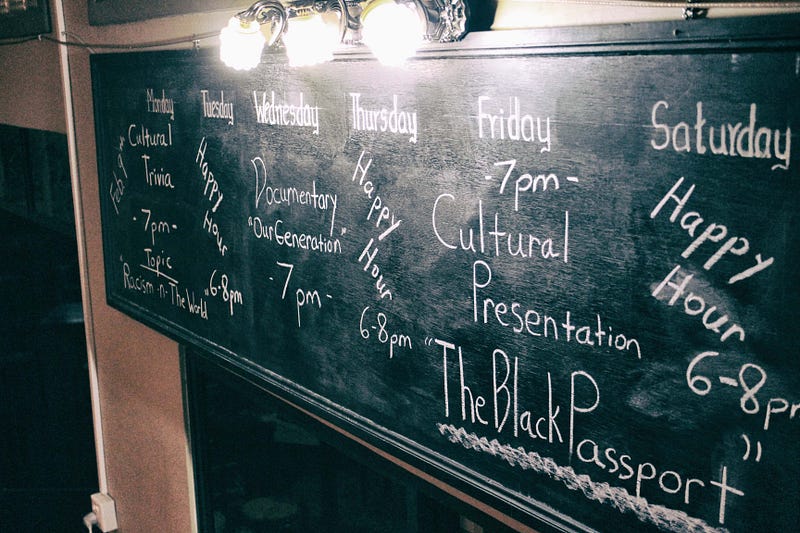 Monday
Feb. 9th
Cultural
Trivia
-7pm-
Topic
"Racism-n-The World"
Tuesday
Happy
Hour
6-8pm
Wednesday
Documentary
"Our Generation"
-7pm-
Thursday
Happy
Hour
6-8pm
Friday
-7pm-
Cultural
Presentation
"The Black Passport"
Saturday
Happy
Hour
6-8pm